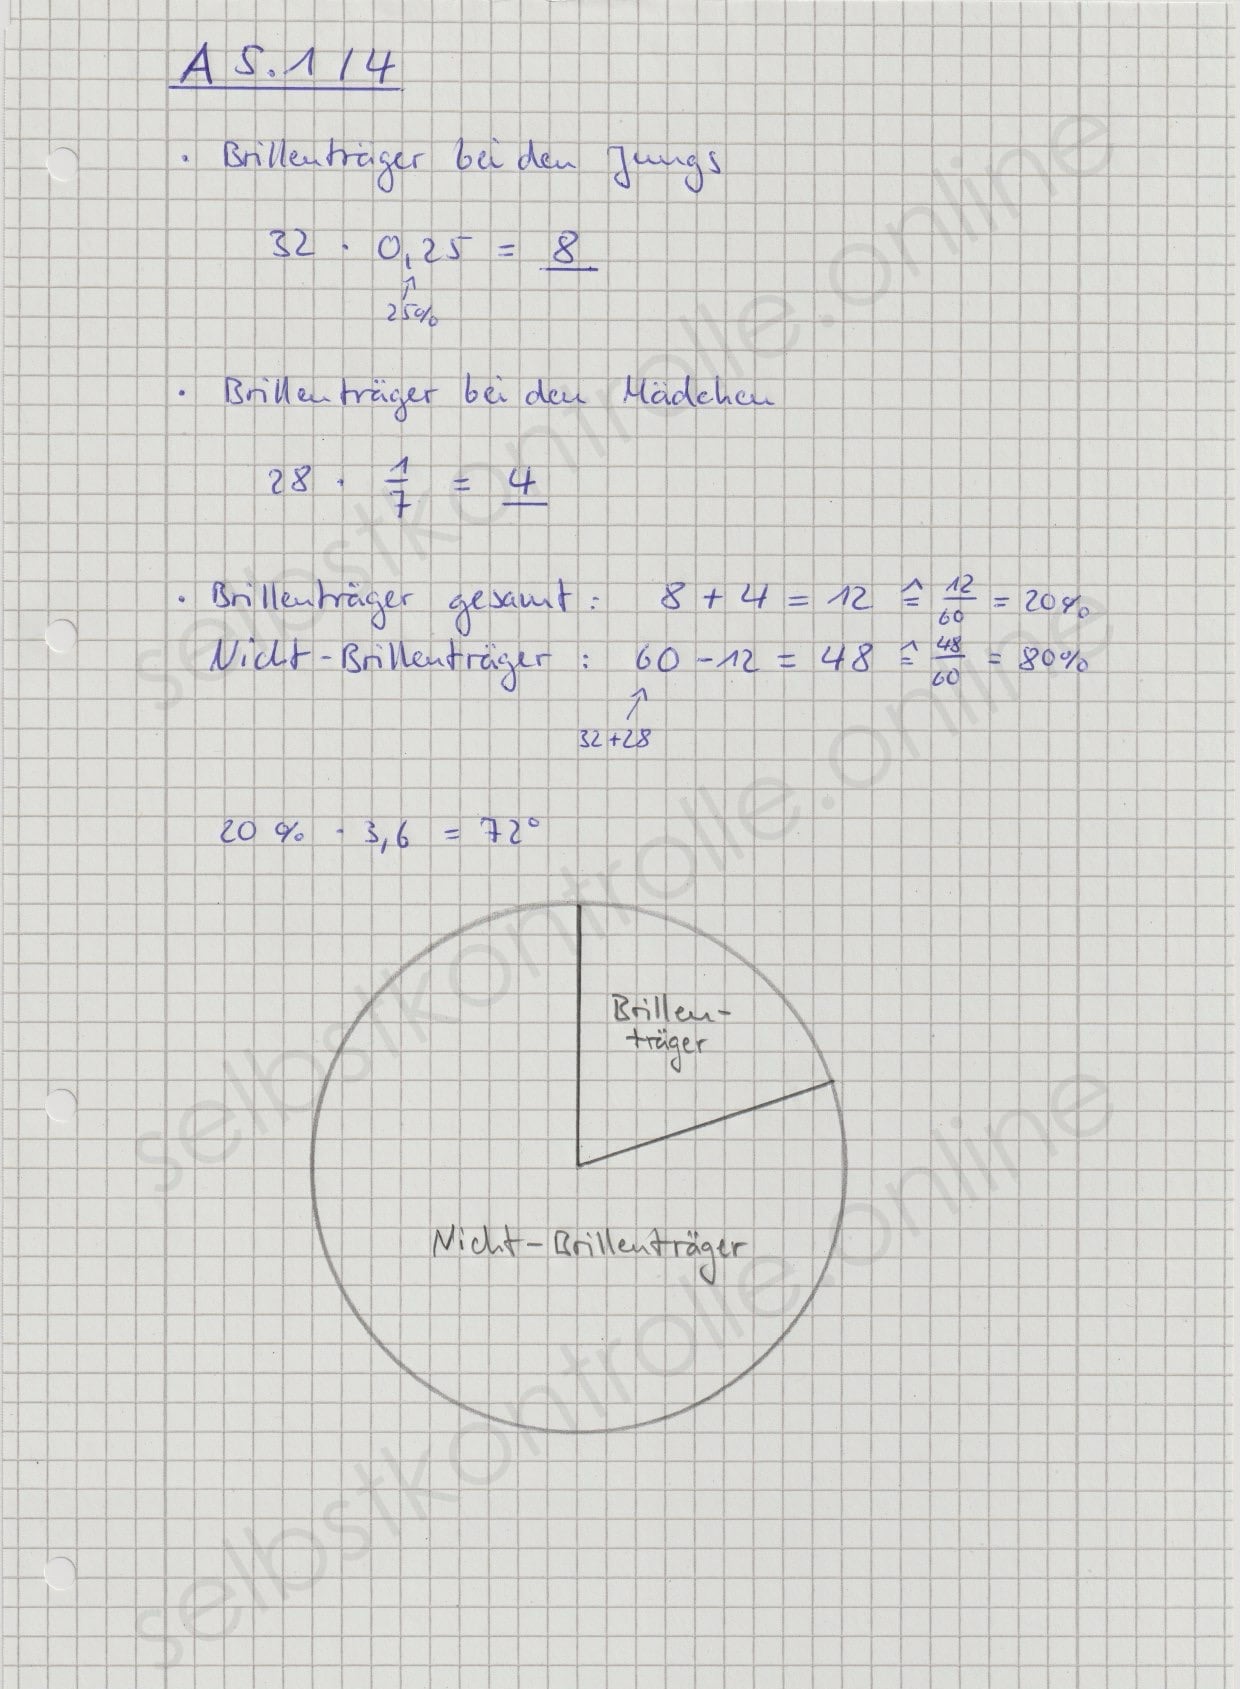 A 5.1 / 4
· Brillenträger bei den Jungs
32 · 0,25 = 8
↑
25%
· Brillenträger bei den Mädchen
28 · 1/7 = 4
· Brillenträger gesamt : 8 + 4 = 12 ≙ 12/60 = 20%
Nicht-Brillenträger : 60 - 12 = 48 ≙ 48/60 = 80%
↑
32+28
20 % · 3,6 = 72°
Brillen-
träger
Nicht-Brillenträger
selbstkontrolle.online
selbstkontrolle.online
selbstkontrolle.online